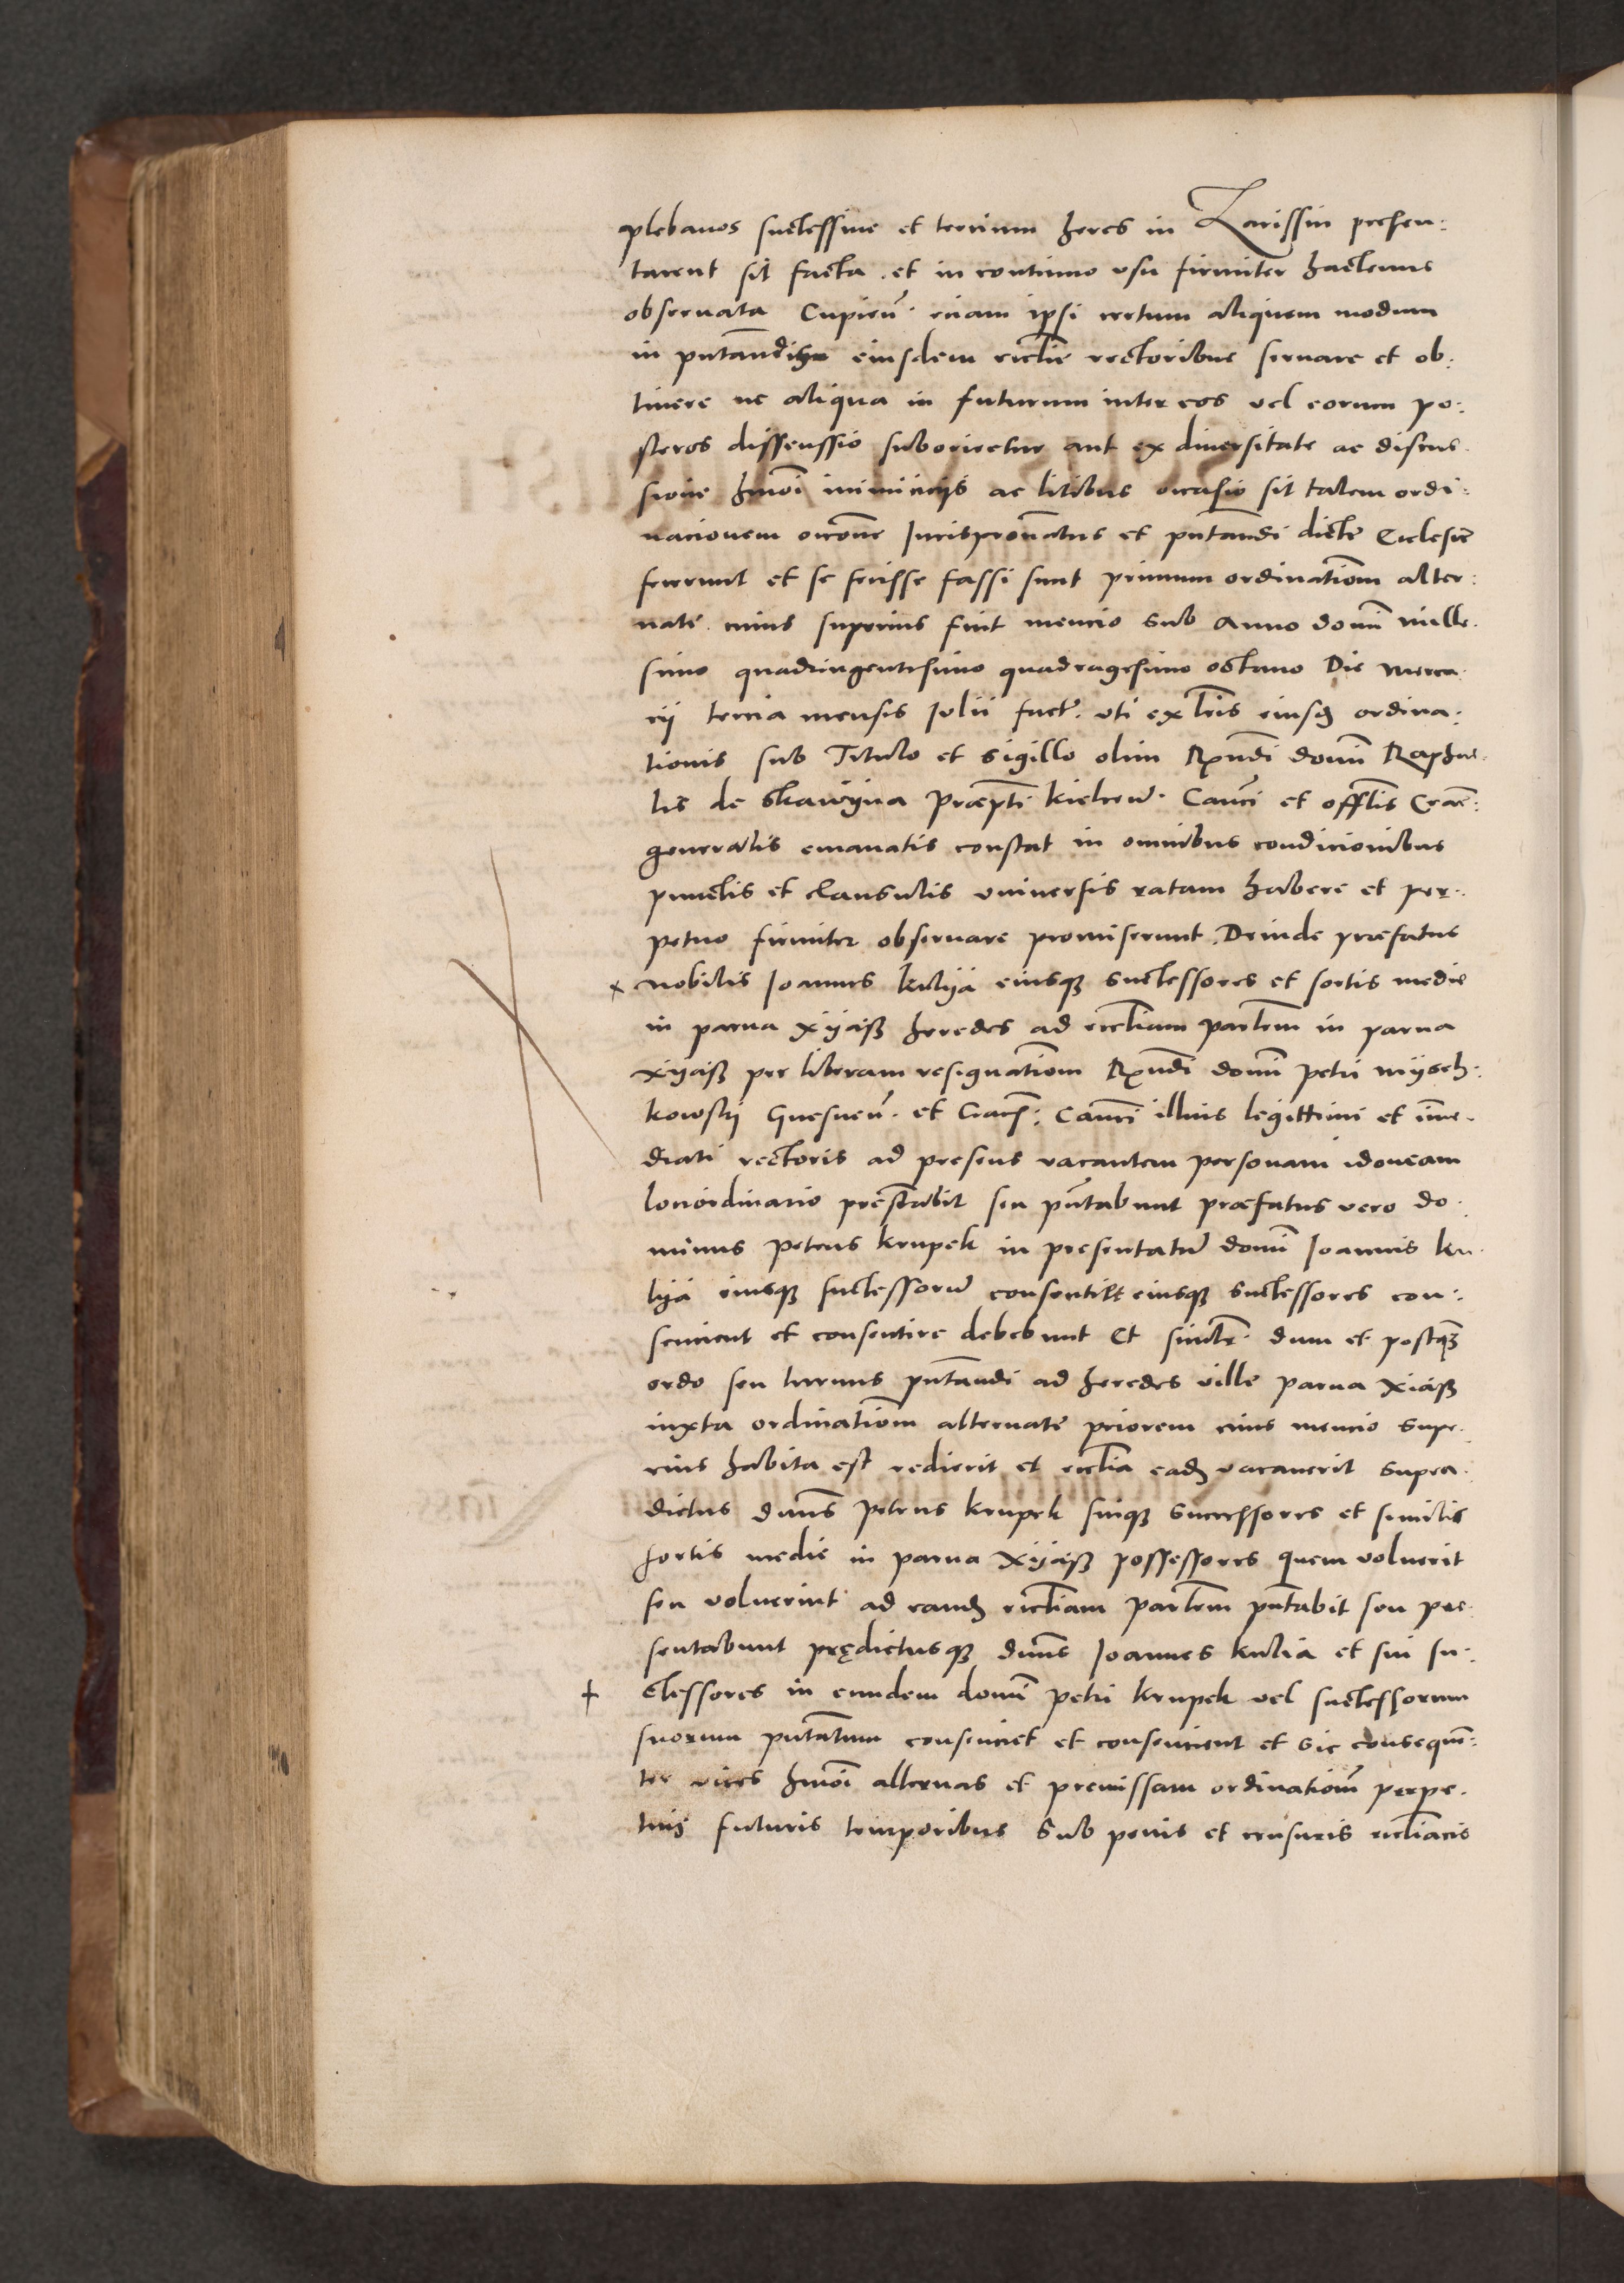 plebanos successive et tercium heres in Karissin presen:
tarent sit facta . et in continuo usu firmiter hactenus
observata Cupien̄ . eciam ipsi certum aliquem modum
in pn̄tandis eiusdem ecclīe rectoribus servare et ob:
tinere ne aliqua in futurum inter eos vel eorum po:
steros dissenssio suboriretur aut ex diversitate ac discus
sione hmōi inimiciciis ac litibus occasio sit talem ordi:
nacionem Jurispatronatus et pn̄tandi dicte Ecclesie
fecerunt et se fecisse fassi sunt primum ordinatiōm alter:
nate cuius superius fuit mencio sub Anno domī mille.
simo quadringentesimo quadragesimo octavo Die Mercu
rii tercia mensis Julii fact̄. uti ex lr̄is eiusdꝫ ordina:
tionis sub Titulo et sigillo olim Rn̄di domī Raphae.
lis de Skawyna Præpti kielcen̄. Canci et offlis Crac̄:
generalis emanatis constat in omnibus condicionibus
punctis et Clausulis universis ratam habere et per.
petuo firmiter observare promiserunt . Deinde præfatus
x nobilis Joannes kulya eiusqꝫ successores et sortis medie
in parva Xyasß heredes ad eccliam parlem in parva
Xyasß per liberam resignatiōm Rn̄di domī petri mysch.
kowsky Gnesnen̄. et Crac̄: Canci illius legittimi et im̄e.
diati rectoris ad presens vacantem personam idoneam
lociordinario presētabit seu pn̄tabunt præfatus vero do.
minus petrus krupek in presentatū domī Joannis ku
lya eiusqꝫ successorū consentit eiusqꝫ successores con:
sencient et consentire debebunt Et simlr̄. dum et postqꝫ
ordo seu turnus pn̄tandi ad heredes ville parva Xiasß
iuxta ordinatiōm alternate priorem cuius mencio supe.
rius habita est redierit et ecclia eadꝫ vacaverit supra.
dictus dn̄us petrus krupek suiqꝫ successores et similis
sortis medie in parva Xyasß possessores quem voluerit
seu voluerint ad eandꝫ eccliam parlem pn̄tabit seu pre
sentabunt prędictusqꝫ dn̄us Joannes kulia et sui su:
+ ccessores in eundem domī petri krupek vel successorum
suorum pn̄tatum consenciet et consencient et sic consequē:
ter vices hmōi alternas et premissam ordinatiōm perpe.
tuis futuris temporibus sub penis et censuris eccliacis